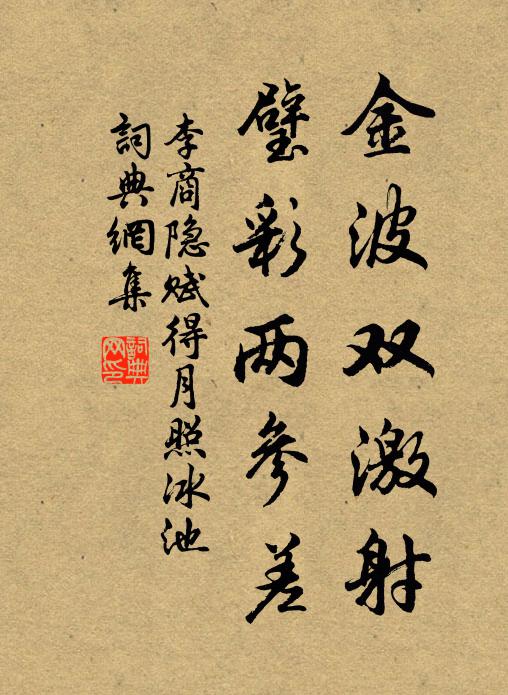 金波双激射
璧彩两参差
李商隐赋得月照冰池
詞典網集
詞典网印